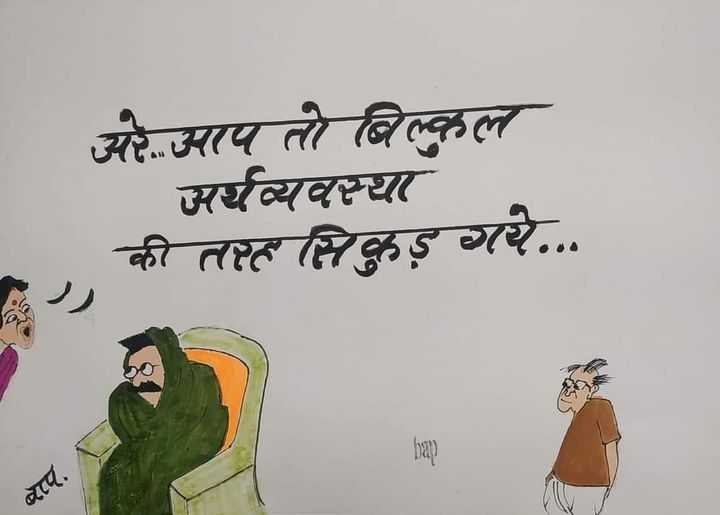 अरे..आप तो बिल्कुल
अर्थव्यवस्था
की तरह सिकुड़ गये...
bap
बाप.